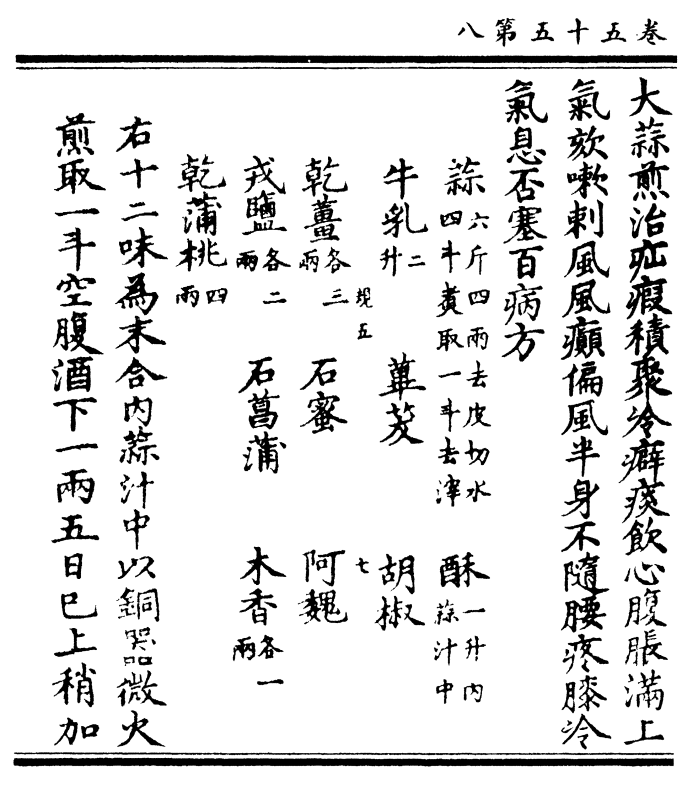 卷五十五第八
大蒜煎治疝瘕積聚冷癖痰飲心腹脹滿上
氣欬嗽刺風風癲偏風半身不隨腰疼膝冷
氣息否塞百病方
蒜六斤四兩去皮切水四斗煑取一斗去滓 酥一升内蒜汁中
牛乳二升 蓽茇 胡椒
規五 七
乾薑各三兩 石蜜 阿魏
戎鹽各二兩 石菖蒲 木香各一兩
乾蒲桃四兩
右十二味為末合内蒜汁中以銅器微火
煎取一斗空腹酒下一兩五日巳上稍加